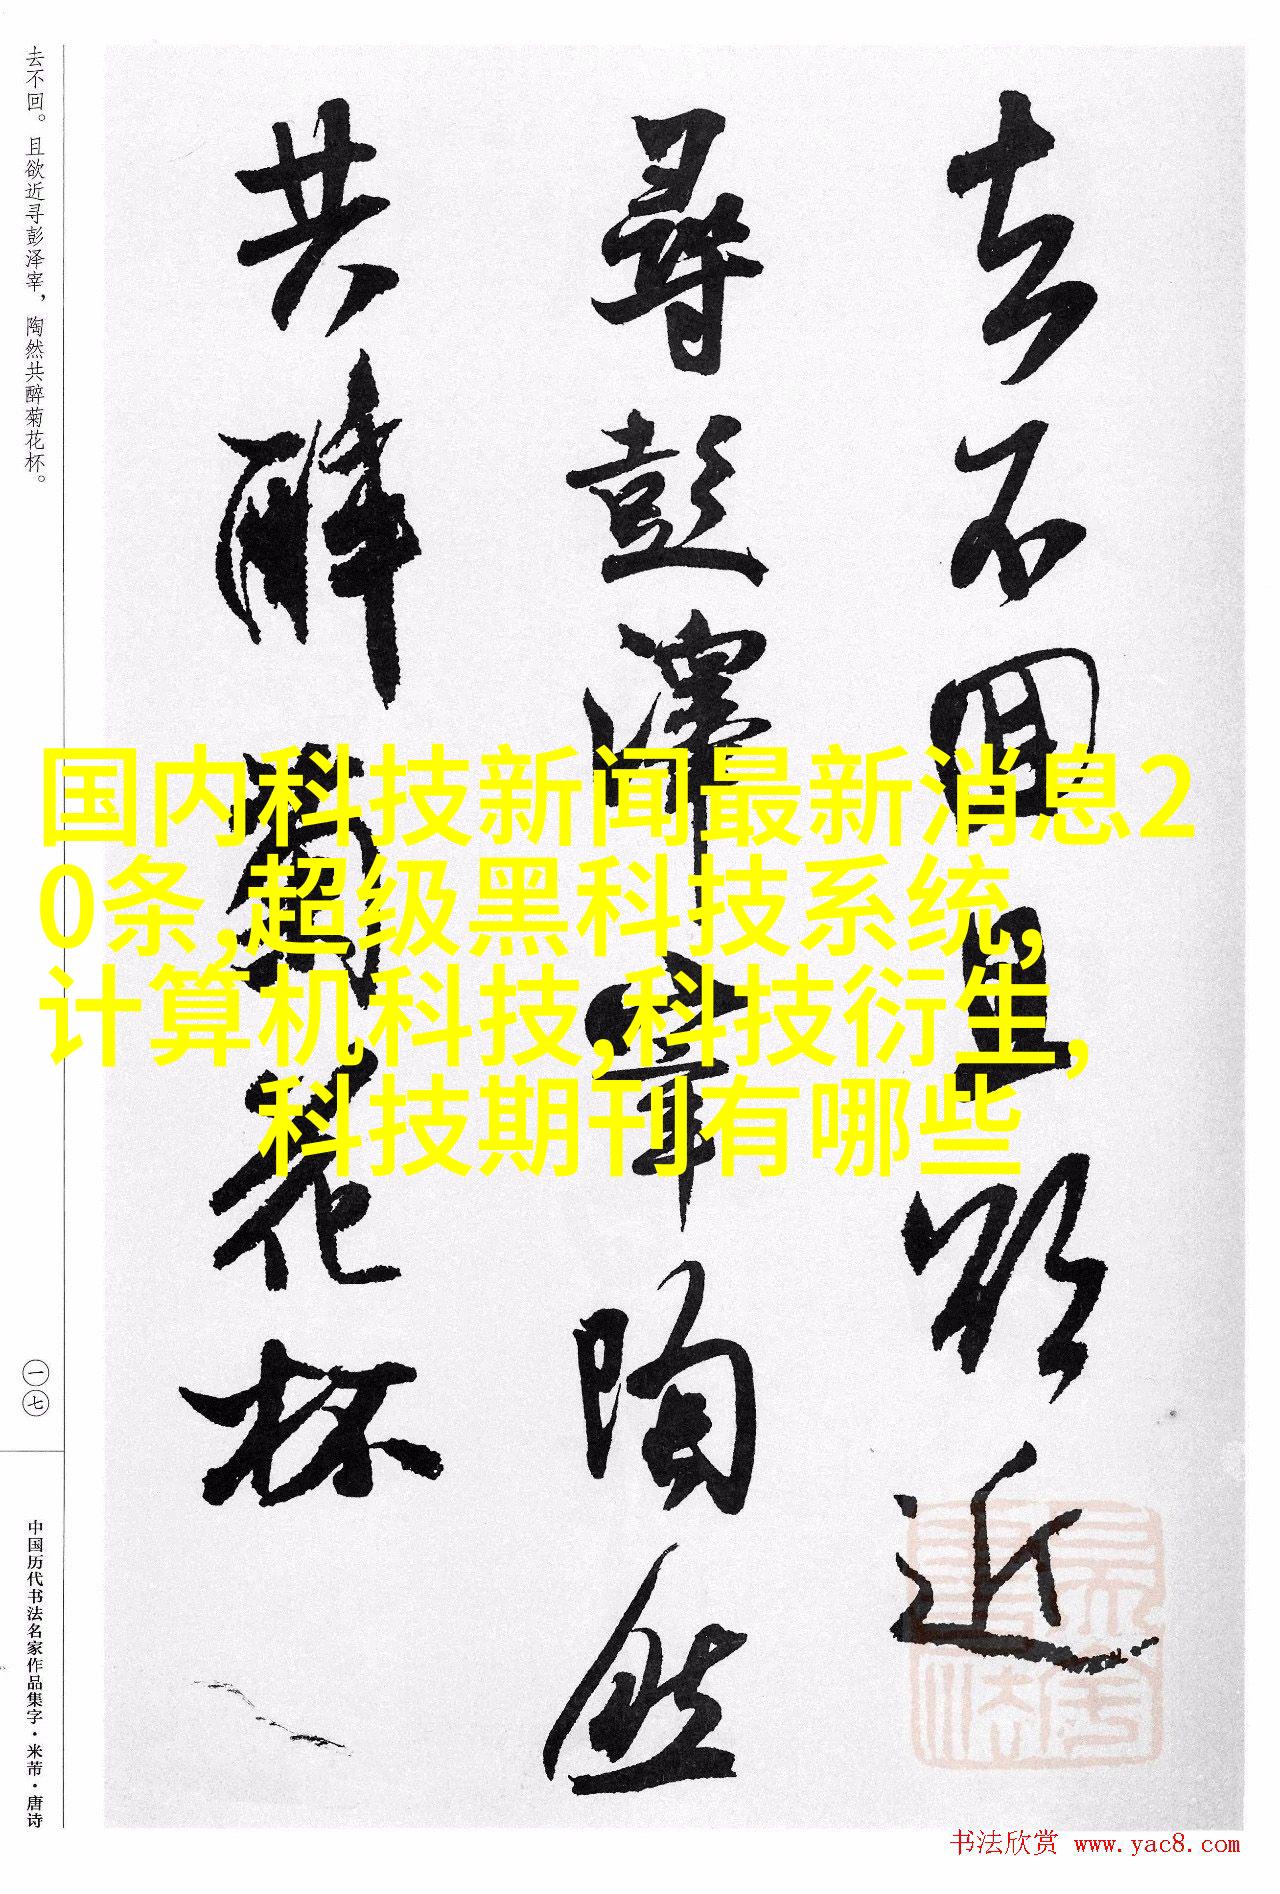 去不回且欲近
尋彭澤宰陶然
共醉菊花杯
去不回。且欲近寻彭泽宰，陶然共醉菊花杯。
一七
中国历代书法名家作品集字·米芾·唐诗
国内科技新闻最新消息2
0条,超级黑科技系统,
计算机科技,科技衍生,
科技期刊有哪些
书法欣赏 www.yac8.com